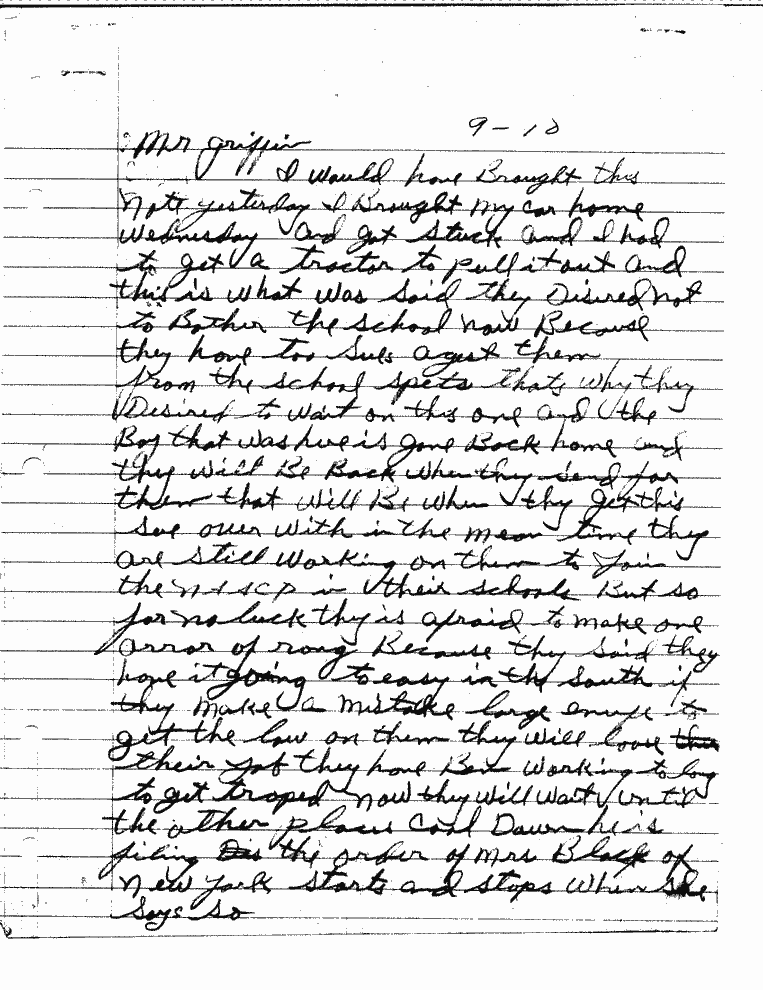 9-10
Mr Griffin
I would have Brought this
Note yesterday I Brought my car home
Wednesday and got stuck and I had
to get a tractor to pull it out and
this is what was said they Disired not
to Bother the school now Because
they have too sues agest them
from the school spets thats why they
Desired to wait on this one and the
Boy that was here is gone Back home and
they will Be Back when they send for
them that will Be when thy get this
sue over with in the mean time they
are still working on them to Join
the in their schools But so
far no luck thy is afraid to make one
arror of rong Because they said they
have it going to easy in the south if
they make a mistake large enuge to
get the law on them they will loose
their Job they have Ben working to long
to get traped now they will wait until
the other places Cool Down he is
filing the order of Mrs Black of
New York starts and stops when she
says so